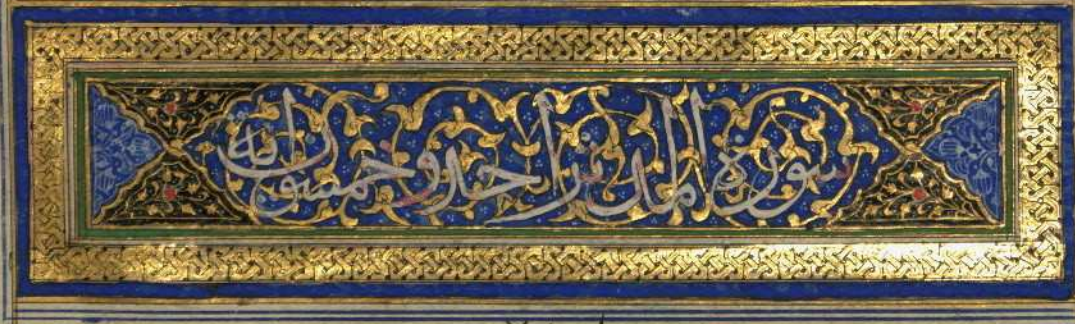 سورة المدثر احد و خمسون اية